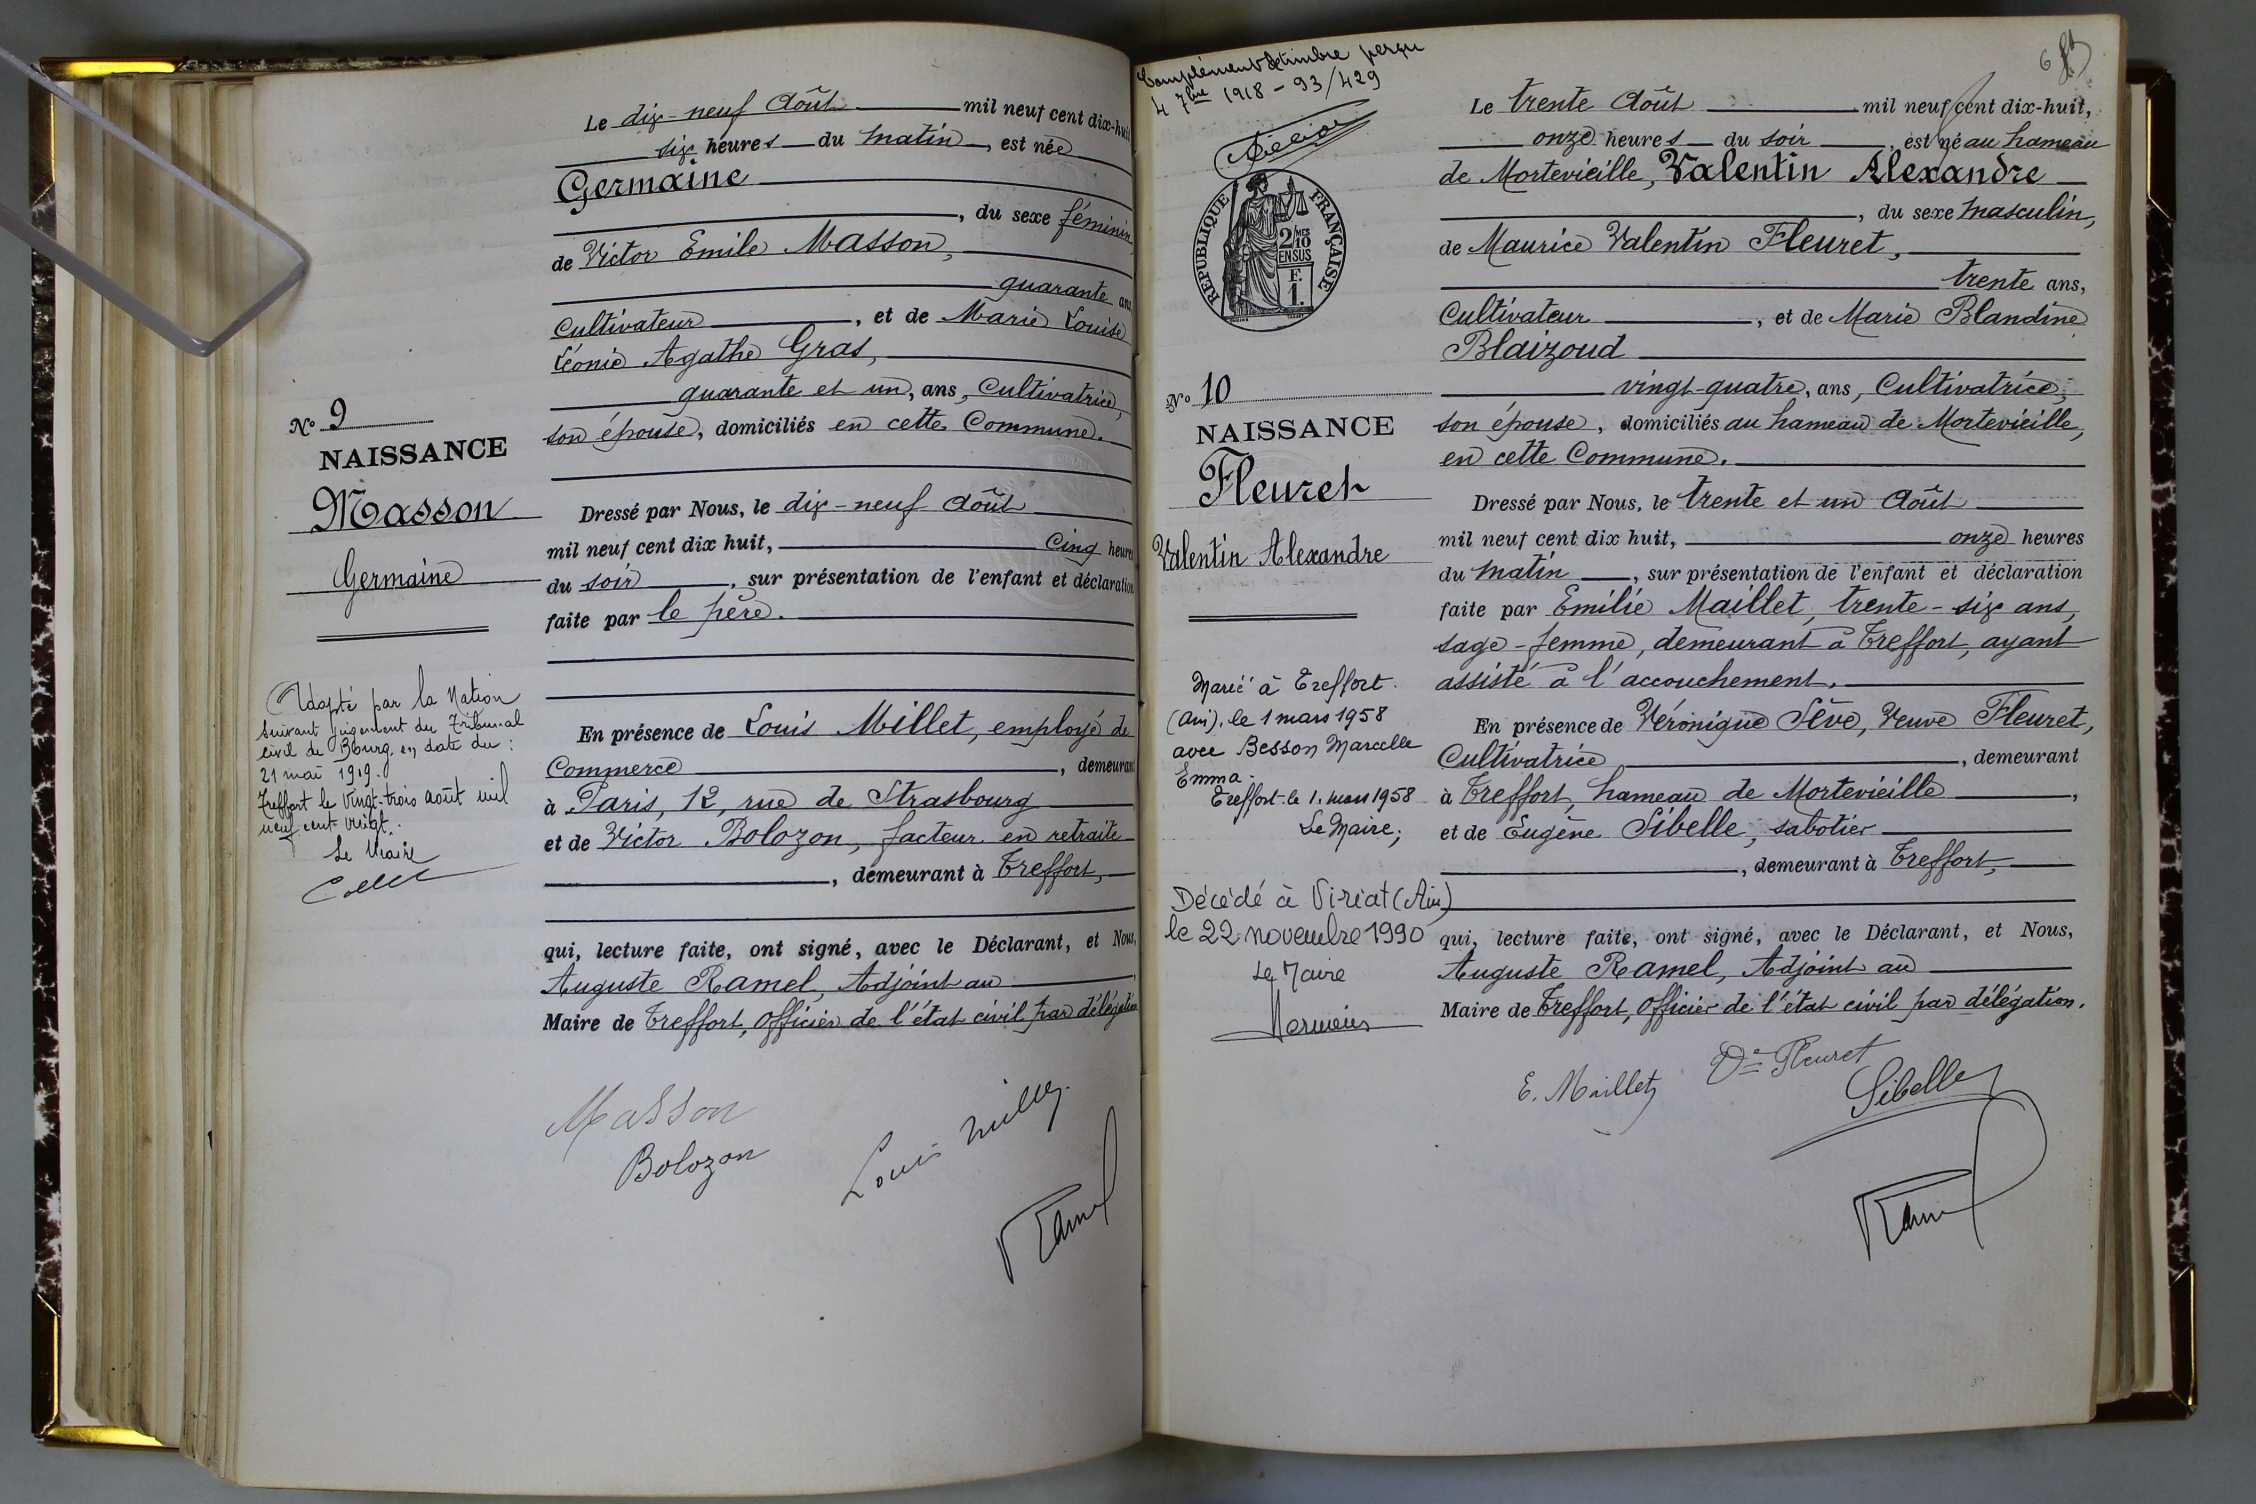 Le dix-neuf Août mil neuf cent dix-huit
six heures du matin, est née
Germaine
, du sexe féminin
de Victor Emile Masson,
quarante ans
Cultivateur, et de Marie Louise
Léonie Agathe Gras,
quarante et un, ans, Cultivatrice,
son épouse, domiciliés en cette Commune.
No 9
NAISSANCE
Masson
Germaine
Dressé par Nous, le dix-neuf Août
mil neuf cent dix huit, Cinq heures
du soir, sur présentation de l'enfant et déclaration
faite par le père.
Adopté par la Nation
suivant jugement du Tribunal
civil de Bourg en date du :
21 mai 1919.
Treffort le vingt-trois août mil
neuf cent vingt.
Le Maire
En présence de Louis Millet, employé de
Commerce, demeurant
à Paris, 12, rue de Strasbourg
et de Victor Bolozon, facteur en retraite
, demeurant à Treffort,
qui, lecture faite, ont signé, avec le Déclarant, et Nous,
Auguste Ramel, Adjoint au
Maire de Treffort, officier de l'état civil par délégation
Masson
Bolozon
Louis Millet
Ramel
Complément de timbre perçu
4 7bre 1918 - 93/429
6
REPUBLIQUE FRANÇAISE
2/MES
10
EN SUS
F.
1.
Le trente Août mil neuf cent dix-huit,
onze heures du soir, est né au hameau
de Mortevieille, Valentin Alexandre
, du sexe masculin,
de Maurice Valentin Fleuret,
trente ans,
Cultivateur, et de Marie Blandine
Blaizoud
vingt-quatre, ans, Cultivatrice,
son épouse, domiciliés au hameau de Mortevieille,
en cette Commune.
No 10
NAISSANCE
Fleuret
Valentin Alexandre
Dressé par Nous, le trente et un Août
mil neuf cent dix huit, onze heures
du matin, sur présentation de l'enfant et déclaration
faite par Emilie Maillet, trente-six ans,
sage-femme, demeurant à Treffort, ayant
assisté à l'accouchement.
Marié à Treffort.
(Ain), le 1 mars 1958
avec Besson Marcelle
Emma.
Treffort-le 1. mars 1958
Le Maire,
Décédé à Viriat (Ain)
le 22 novembre 1990
Le Maire
En présence de Véronique Sève, Veuve Fleuret,
Cultivatrice, demeurant
à Treffort, hameau de Mortevieille,
et de Eugène Sibelle, sabotier
, demeurant à Treffort,
qui, lecture faite, ont signé, avec le Déclarant, et Nous,
Auguste Ramel, Adjoint au
Maire de Treffort, officier de l'état civil par délégation.
E. Maillet
Ve Fleuret
Sibelle
Ramel